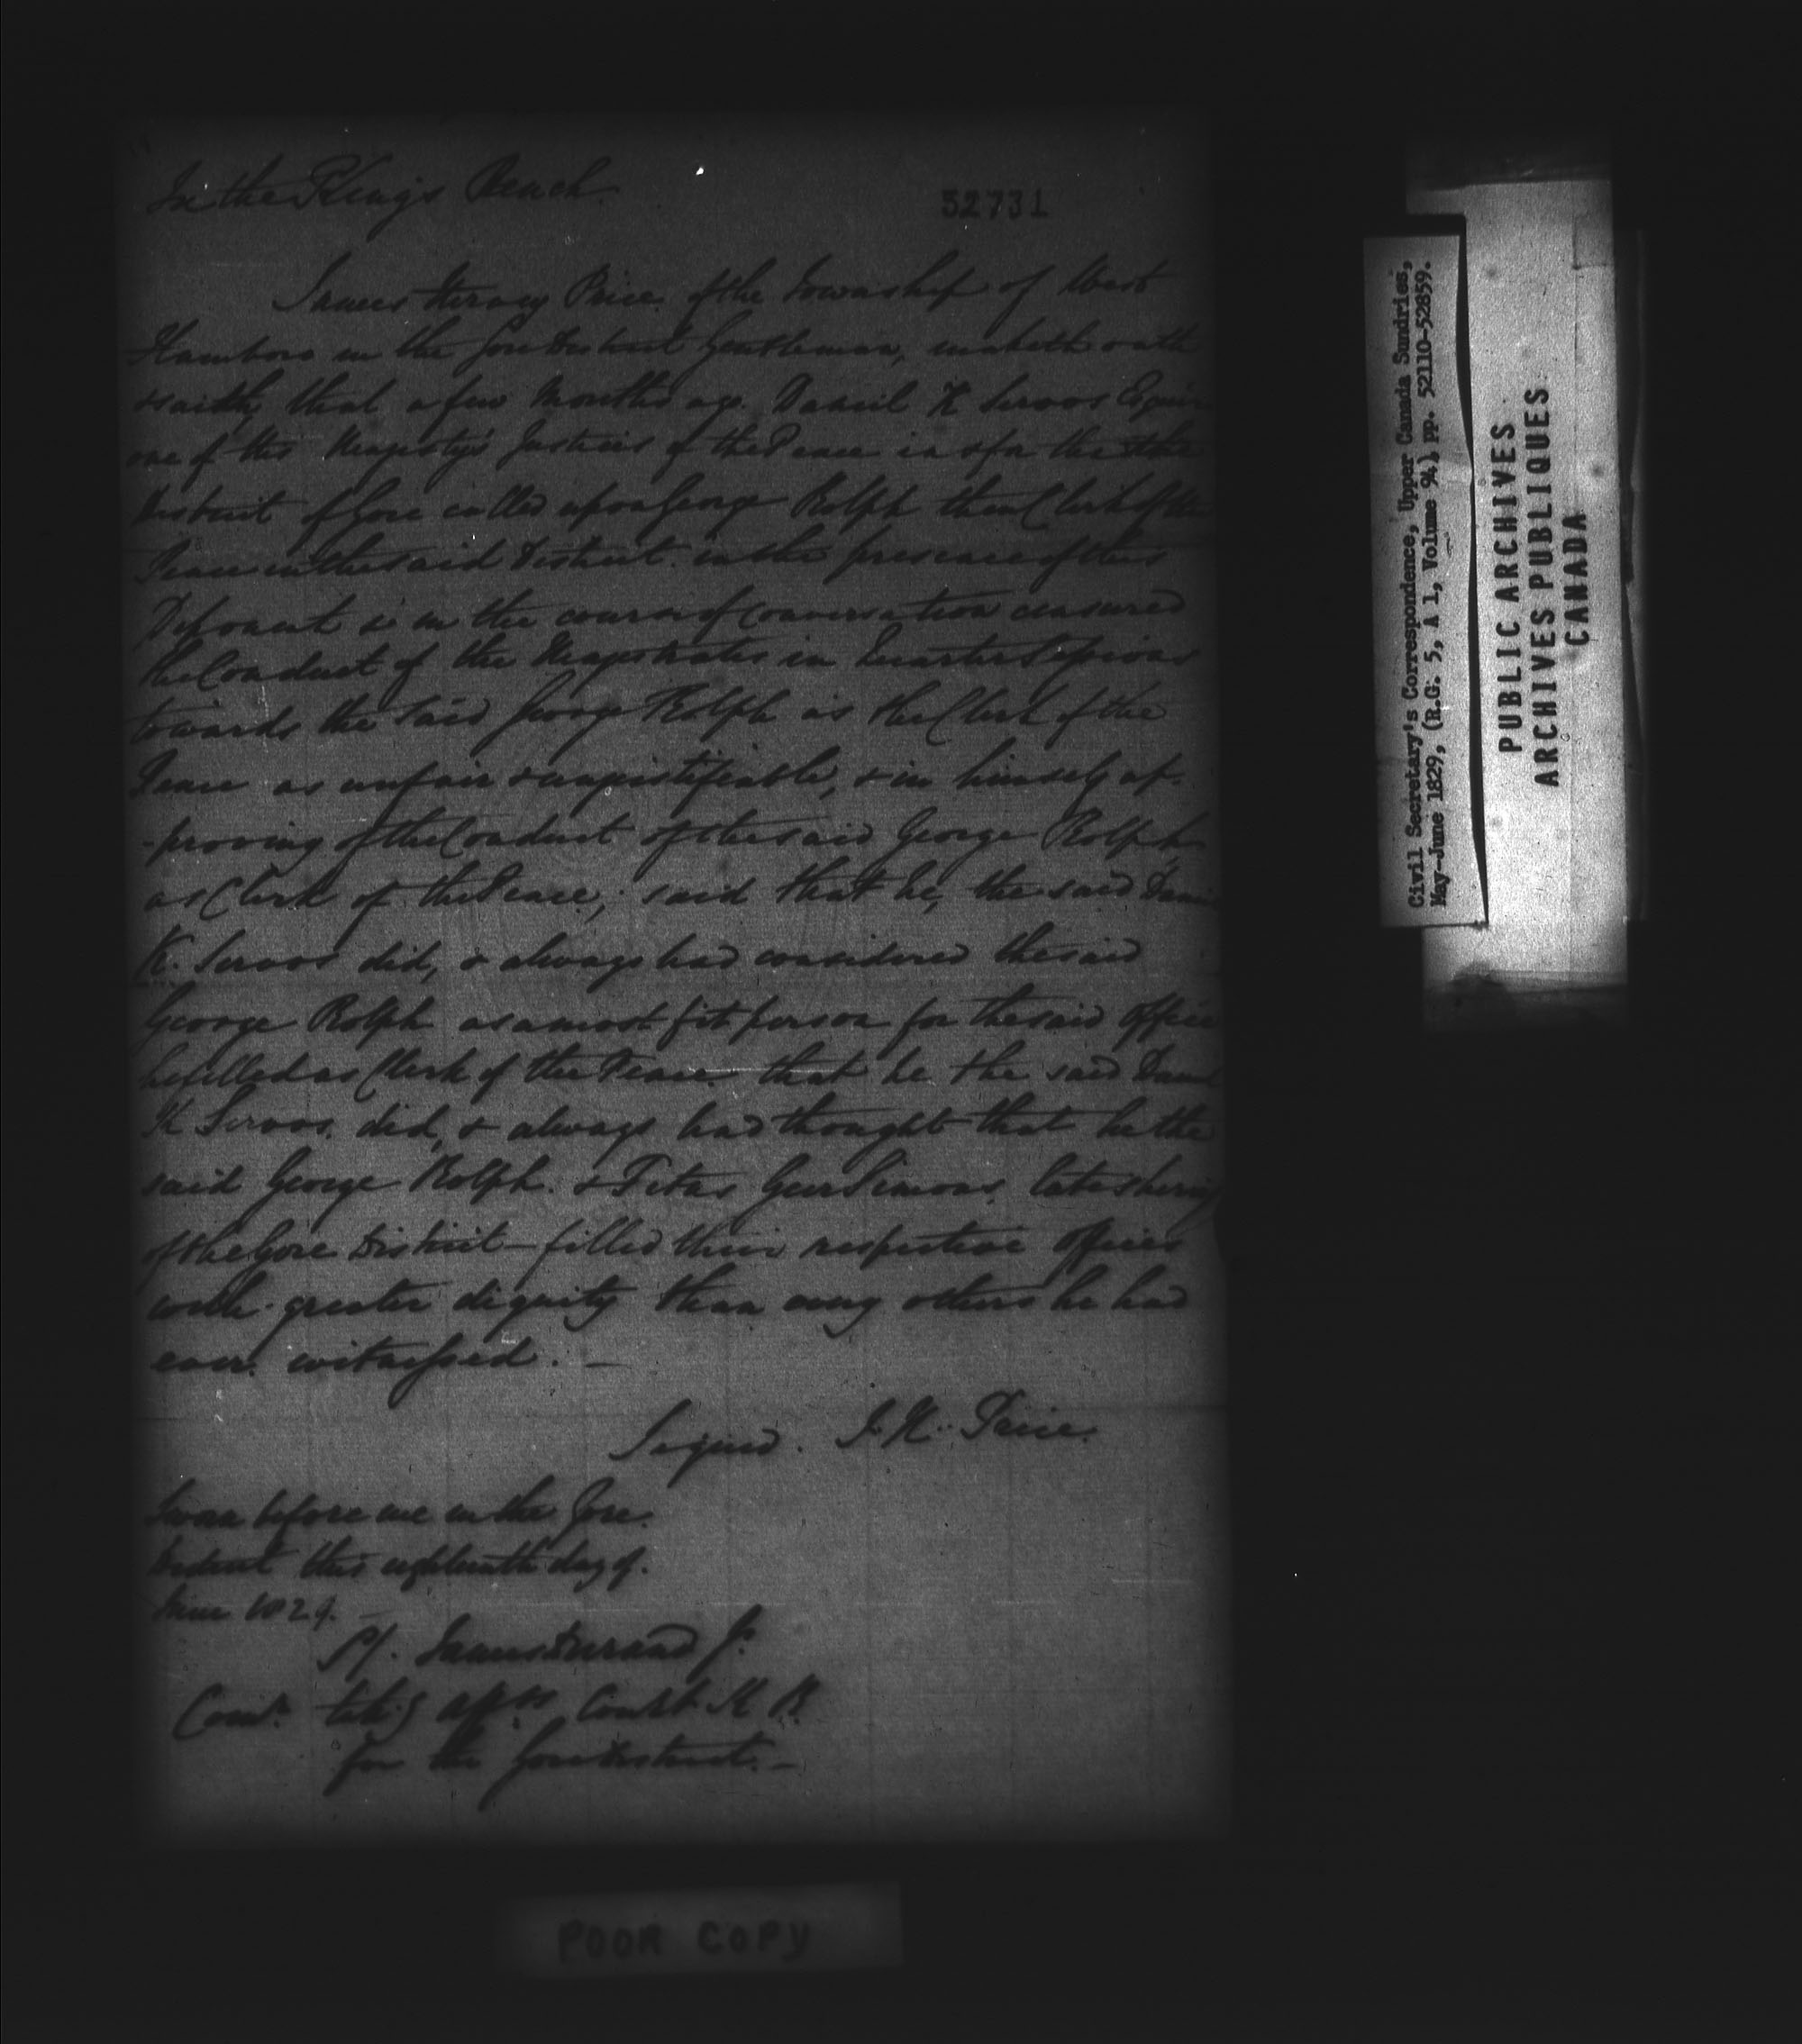 In the Kings Bench.
52731
James Hervey Price of the Township of West
Flamboro in the Gore District Gentleman, maketh oath
& saith, that a few Months ago Daniel K Servos Esquire
one of His Majesty's Justices of the Peace in & for the
District of Gore called upon George Rolph then Clerk of the
Peace in the said District in the presence of this
Deponent & in the course of Conversation censured
the Conduct of the Magistrates in Quarter Sessions
towards the said George Rolph as the Clerk of the
Peace as unfair & unjustifiable, & in himself ap-
-proving of the Conduct of the said George Rolph
as Clerk of the Peace; said that he, the said Daniel
K. Servos did, & always had considered the said
George Rolph as a most fit person for the said office
he filled as Clerk of the Peace that he the said Daniel
K Servos did, & always had thought that he the
said George Rolph & Titus Geer Simons late sheriff
of the Gore District - filled their respective offices
with greater dignity than any others he had
ever witnessed. —
Signed. J. H. Price.
Sworn before me in the Gore
District this eighteenth day of
June 1829. —
James Durand Jr.
Comr. takg affts Court K B
for the Gore District. —
POOR COPY
Civil Secretary's Correspondence, Upper Canada Sundries,
May-June 1829, (R.G. 5, A 1, Volume 94) pp. 52110-52859.
PUBLIC ARCHIVES
ARCHIVES PUBLIQUES
CANADA